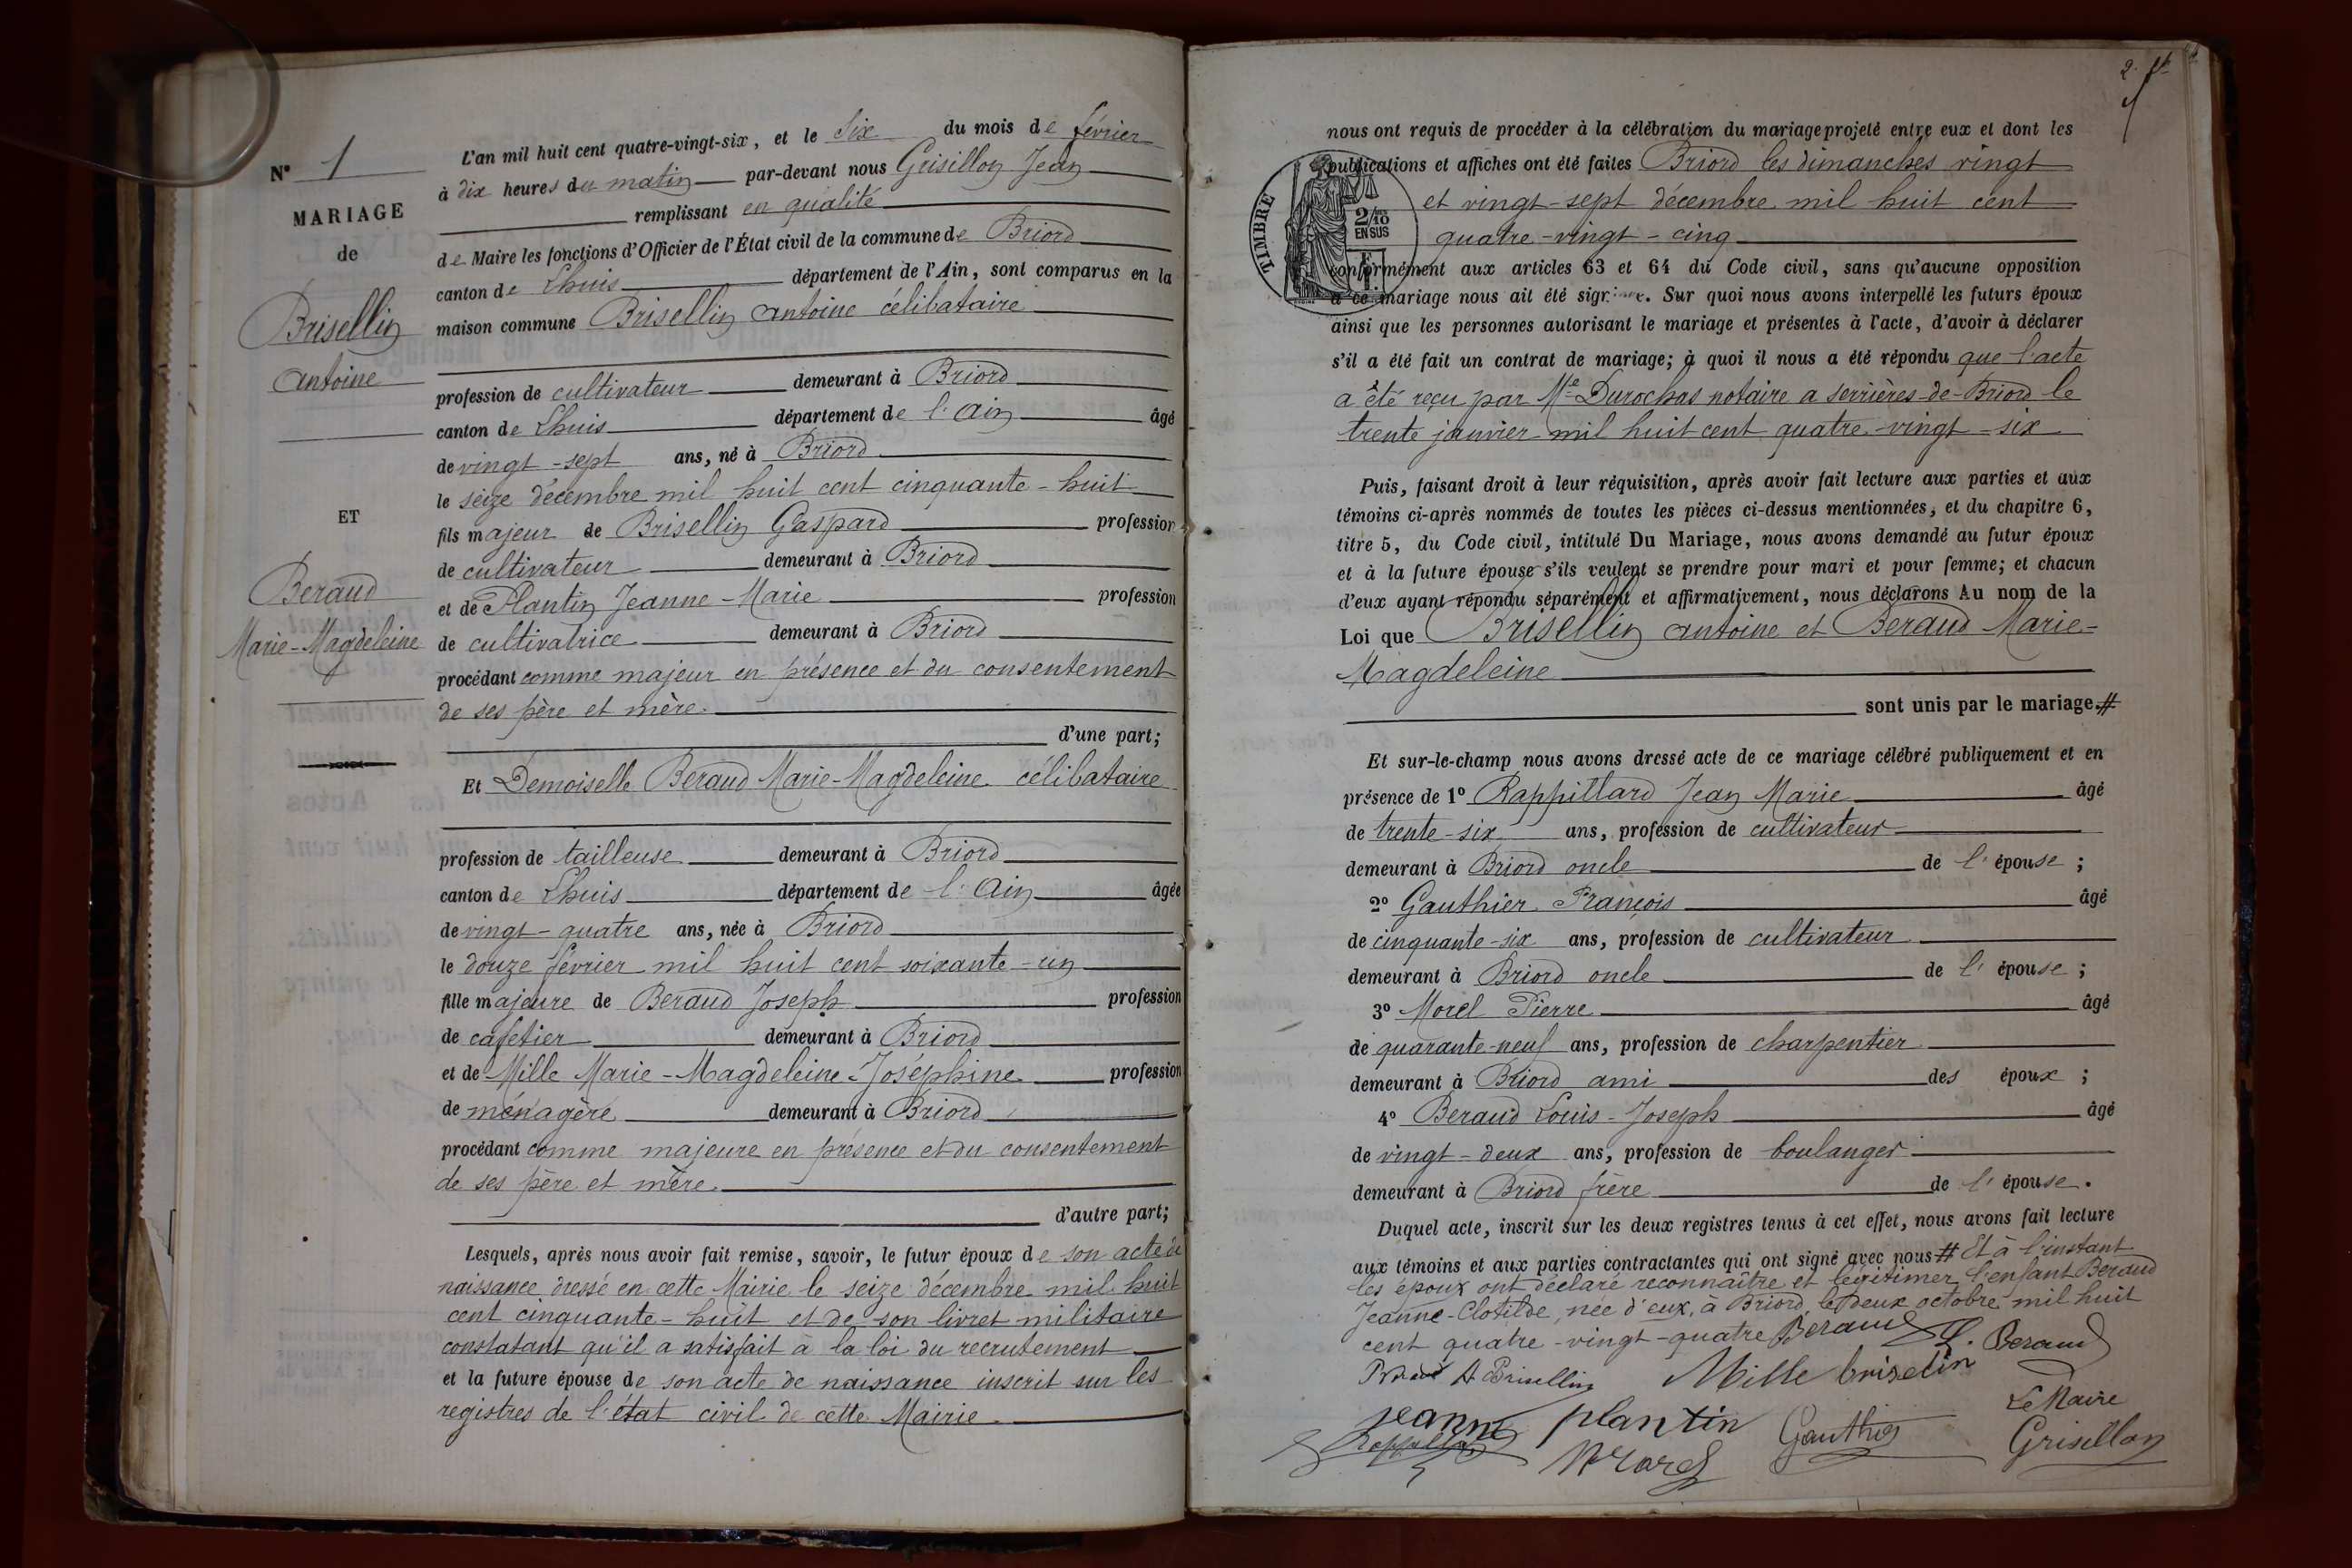 N° 1
MARIAGE
de
Brisellin
Antoine
ET
Beraud
Marie-Magdeleine
L'an mil huit cent quatre-vingt-six, et le six du mois de février
à dix heures du matin par-devant nous Grisillon Jean
remplissant en qualité
de Maire les fonctions d'Officier de l'État civil de la commune de Briord
canton de Lhuis département de l'Ain, sont comparus en la
maison commune Brisellin Antoine célibataire
profession de cultivateur demeurant à Briord
canton de Lhuis département de l'Ain âgé
de vingt-sept ans, né à Briord
le seize décembre mil huit cent cinquante-huit
fils majeur de Brisellin Gaspard profession
de cultivateur demeurant à Briord
et de Plantin Jeanne-Marie profession
de cultivatrice demeurant à Briord
procédant comme majeur en présence et du consentement
de ses père et mère.
d'une part;
Et Demoiselle Beraud Marie-Magdeleine célibataire
profession de tailleuse demeurant à Briord
canton de Lhuis département de l'Ain âgée
de vingt-quatre ans, née à Briord
le douze février mil huit cent soixante-un
fille majeure de Beraud Joseph profession
de cafetier demeurant à Briord
et de Mille Marie-Magdeleine-Joséphine profession
de ménagère demeurant à Briord
procédant comme majeure en présence et du consentement
de ses père et mère.
d'autre part;
Lesquels, après nous avoir fait remise, savoir, le futur époux de son acte de
naissance dressé en cette Mairie le seize décembre mil huit
cent cinquante-huit et de son livret militaire
constatant qu'il a satisfait à la loi du recrutement
et la future épouse de son acte de naissance inscrit sur les
registres de l'état civil de cette Mairie.
2.
nous ont requis de procéder à la célébration du mariage projeté entre eux et dont les
publications et affiches ont été faites Briord les dimanches vingt
et vingt-sept décembre mil huit cent
quatre-vingt-cinq
TIMBRE
2/10
EN SUS
conformément aux articles 63 et 64 du Code civil, sans qu'aucune opposition
à ce mariage nous ait été signifiée. Sur quoi nous avons interpellé les futurs époux
ainsi que les personnes autorisant le mariage et présentes à l'acte, d'avoir à déclarer
s'il a été fait un contrat de mariage; à quoi il nous a été répondu que l'acte
a été reçu par Me Durochas notaire a serrières-de-Briord le
trente janvier mil huit cent quatre-vingt-six
Puis, faisant droit à leur réquisition, après avoir fait lecture aux parties et aux
témoins ci-après nommés de toutes les pièces ci-dessus mentionnées, et du chapitre 6,
titre 5, du Code civil, intitulé Du Mariage, nous avons demandé au futur époux
et à la future épouse s'ils veulent se prendre pour mari et pour femme; et chacun
d'eux ayant répondu séparément et affirmativement, nous déclarons Au nom de la
Loi que Brisellin Antoine et Beraud Marie-
Magdeleine
sont unis par le mariage.#
Et sur-le-champ nous avons dressé acte de ce mariage célébré publiquement et en
présence de 1° Rappillard Jean Marie âgé
de trente-six ans, profession de cultivateur
demeurant à Briord oncle de l'épouse;
2° Gauthier François âgé
de cinquante-six ans, profession de cultivateur
demeurant à Briord oncle de l'épouse;
3° Morel Pierre âgé
de quarante-neuf ans, profession de charpentier
demeurant à Briord ami des époux;
4° Beraud Louis-Joseph âgé
de vingt-deux ans, profession de boulanger
demeurant à Briord frère de l'épouse.
Duquel acte, inscrit sur les deux registres tenus à cet effet, nous avons fait lecture
aux témoins et aux parties contractantes qui ont signé avec nous # Et à l'instant
les époux ont déclaré reconnaître et légitimer l'enfant Beraud
Jeanne-Clotilde, née d'eux, à Briord, le deux octobre mil huit
cent quatre-vingt-quatre Beraud Beraud
A Brisellin Mille briselin
Le Maire
jeanne plantin Gauthier Grisillon